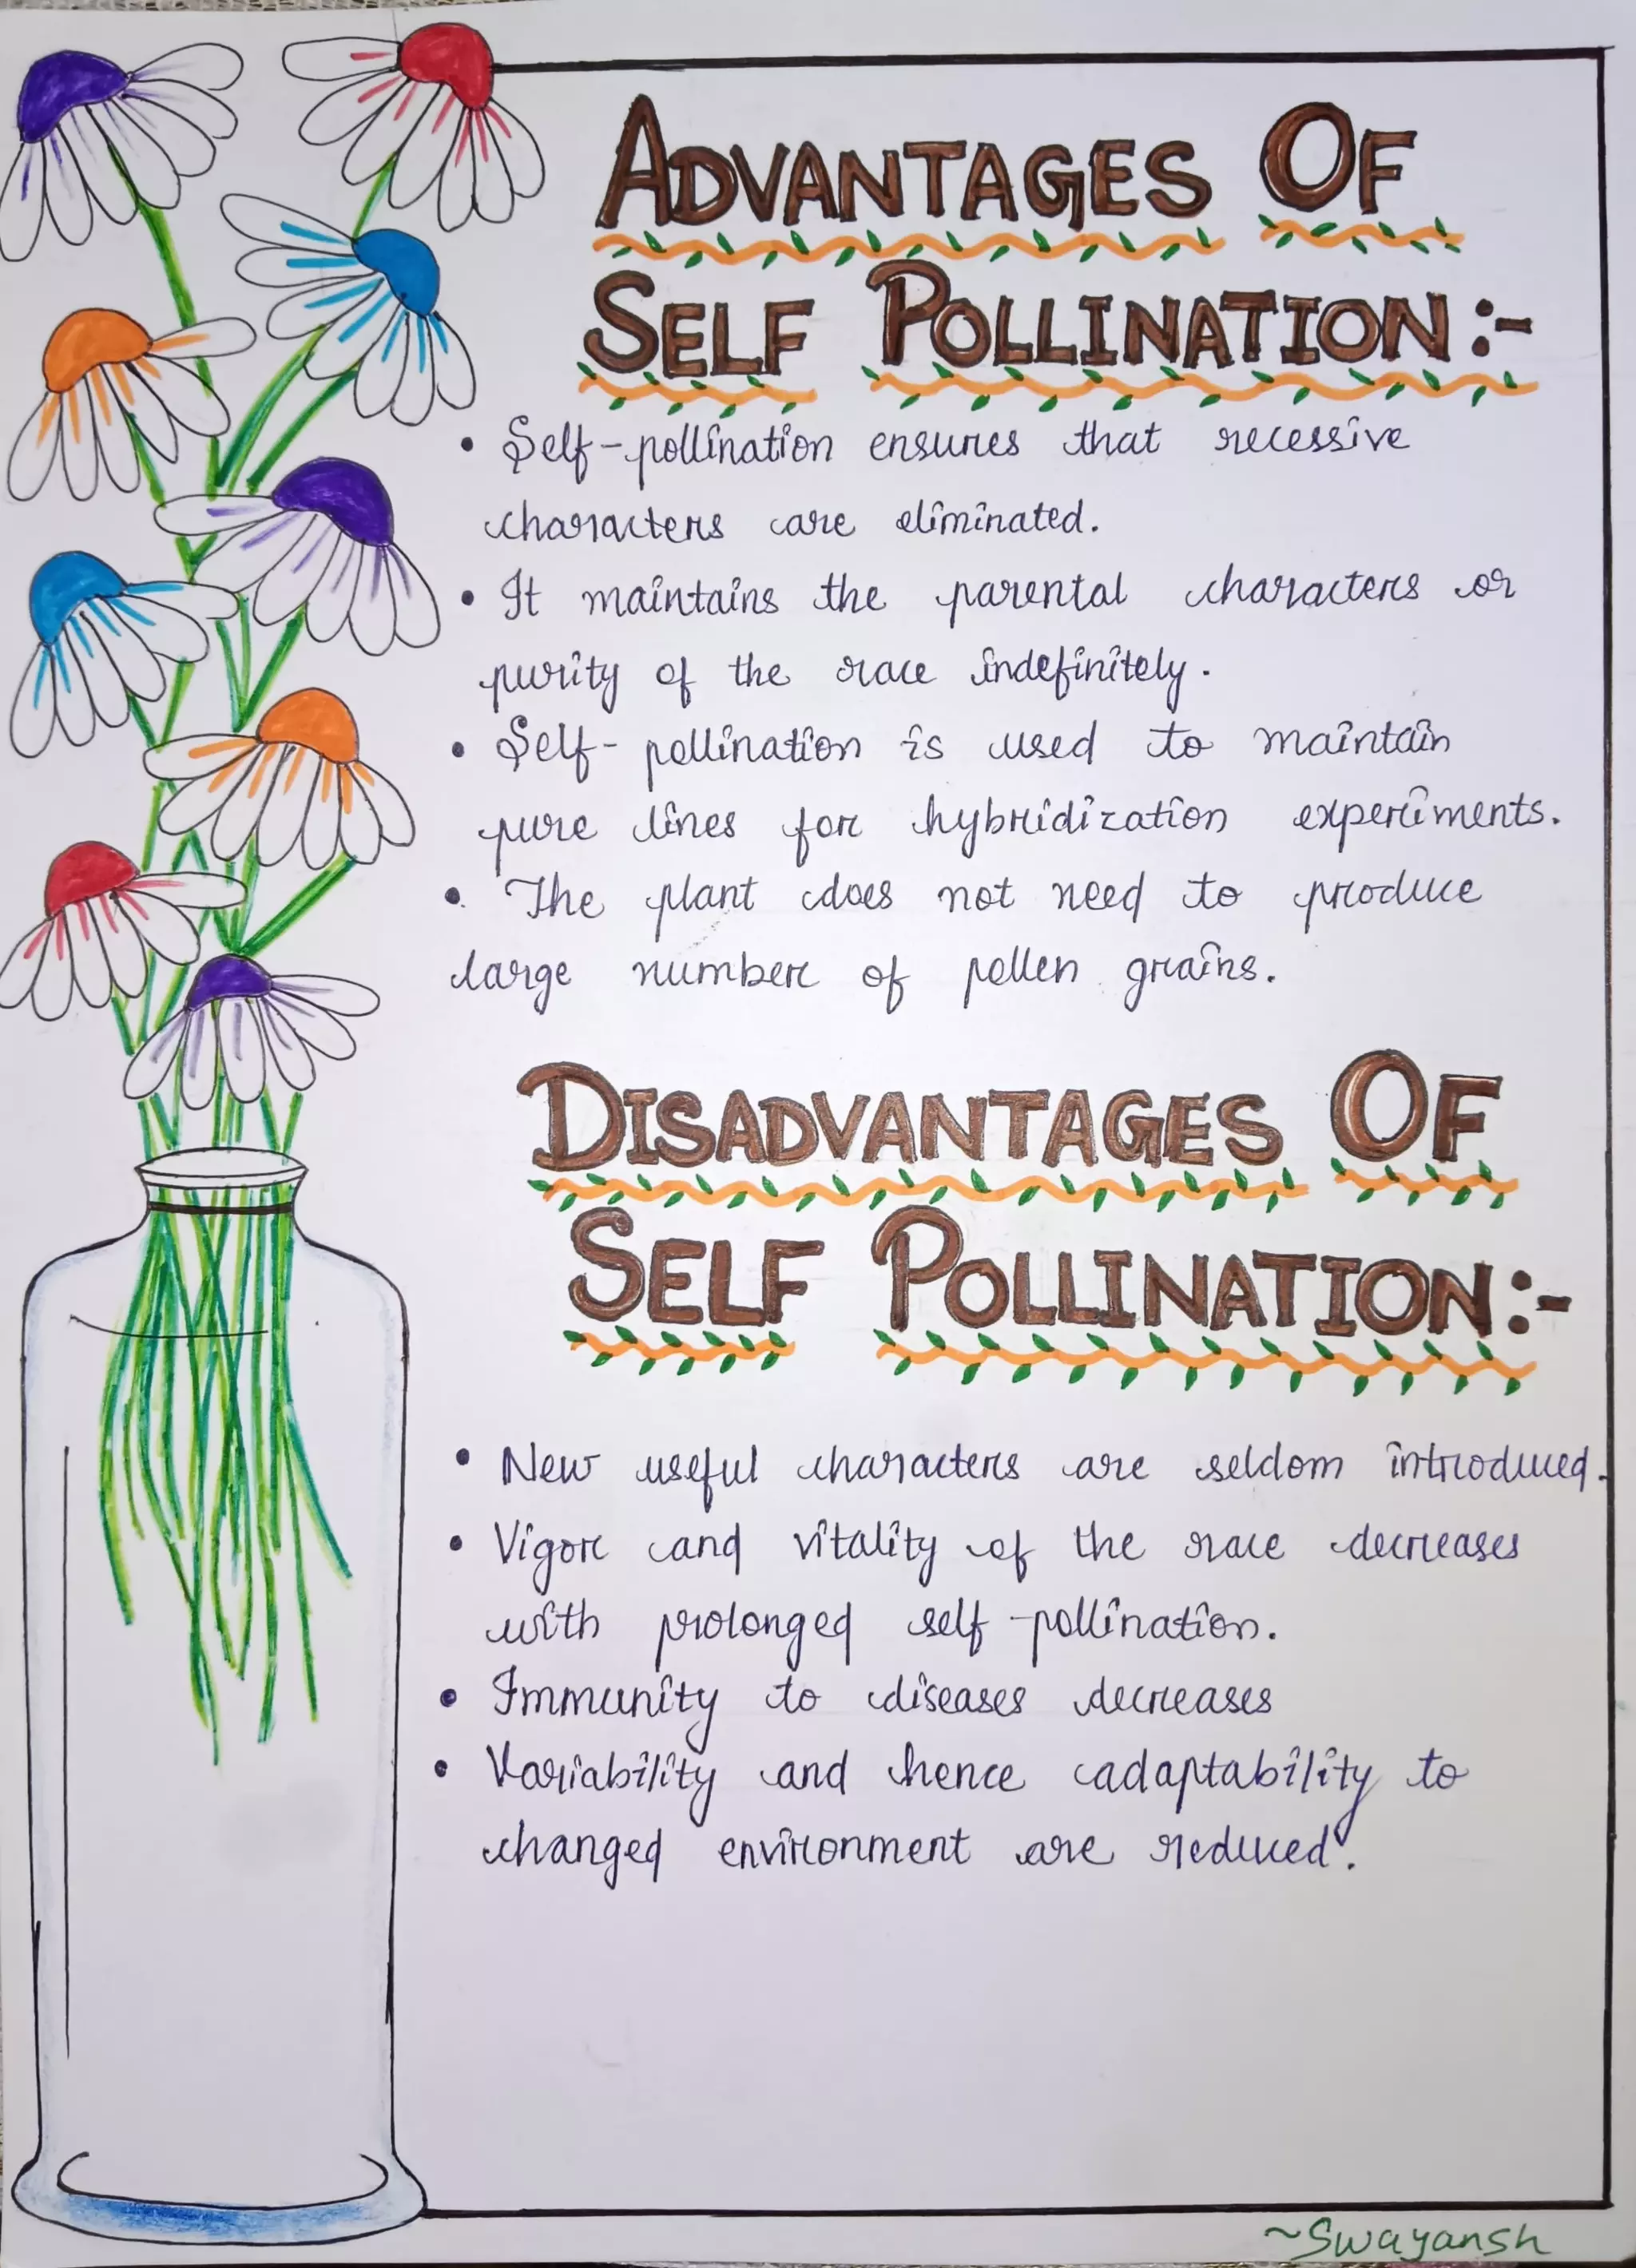 ADVANTAGES OF
SELF POLLINATION:-
• Self-pollination ensures that recessive
characters are eliminated.
• It maintains the parental characters or
purity of the race indefinitely.
• Self-pollination is used to maintain
pure lines for hybridization experiments.
• The plant does not need to produce
large number of pollen grains.
DISADVANTAGES OF
SELF POLLINATION:-
• New useful characters are seldom introduced.
• Vigor and vitality of the race decreases
with prolonged self-pollination.
• Immunity to diseases decreases
• Variability and hence adaptability to
changed environment are reduced.
~Swayansh